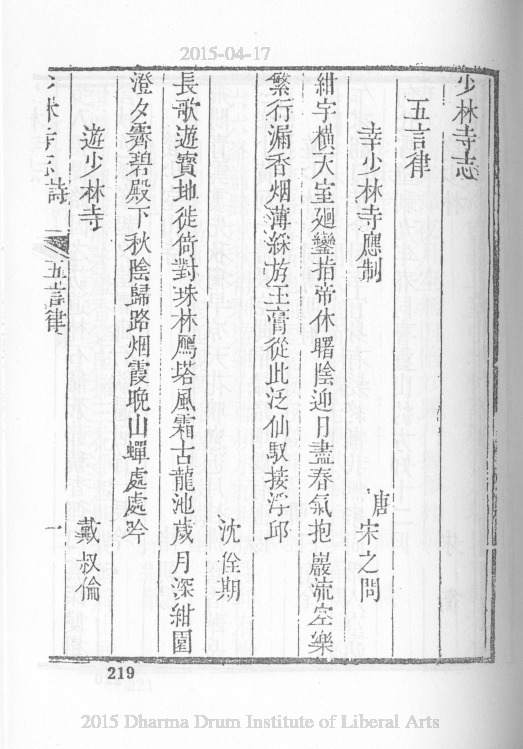 2015-04-17
少林寺志
五言律
幸少林寺應制 唐宋之問
紺宇橫天室迴鑾指帝休曙陰迎日盡春氣抱巖流空樂
繁行漏香烟薄綵斿玉膏從此泛仙馭接浮邱
沈佺期
長歌遊寶地徙倚對珠林鴈塔風霜古龍池歲月深紺園
澄夕霽碧殿下秋陰歸路烟霞晚山蟬處處吟
遊少林寺 戴叔倫
少林寺志 詩 五言律 一
219
2015 Dharma Drum Institute of Liberal Arts